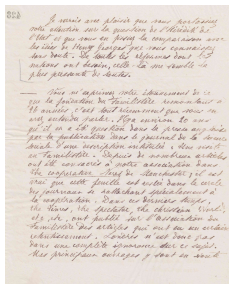 Je verrais avec plaisir que vous portassiez
votre attention sur la question de l'hérédité de
l'Etat et que vous en fissiez la comparaison avec
les idées de Henry George que vous connaissez
sans doute. De toutes les réformes dont les
nations ont besoin, celle-là me semble la
plus pressante de toutes.
Vous m'exprimez votre étonnement de ce
que la fondation du Familistère remontant à
ans, c'est tout récemment que vous en
avez entendu parler. Il y a environ 20 ans
qu'il en a été question dans la presse anglaise
par la publication dans le journal de la
d'une inscription intitulée : Une visite
au Familistère. Depuis de nombreux articles
ont été consacrés à notre association dans
the coopérative News de Manchester ; il est
vrai que cette feuille est restée dans le cercle
des journaux se rattachant spécialement à
la coopération. Dans ces derniers temps,
the Times, the spectator, the christian
etc, etc, ont publié sur l'association du
Familistère des articles qui ont eu un certain
retentissement. Londres n'est donc pas
dans une complète ignorance sur ce sujet.
Mes principaux ouvrages y sont en